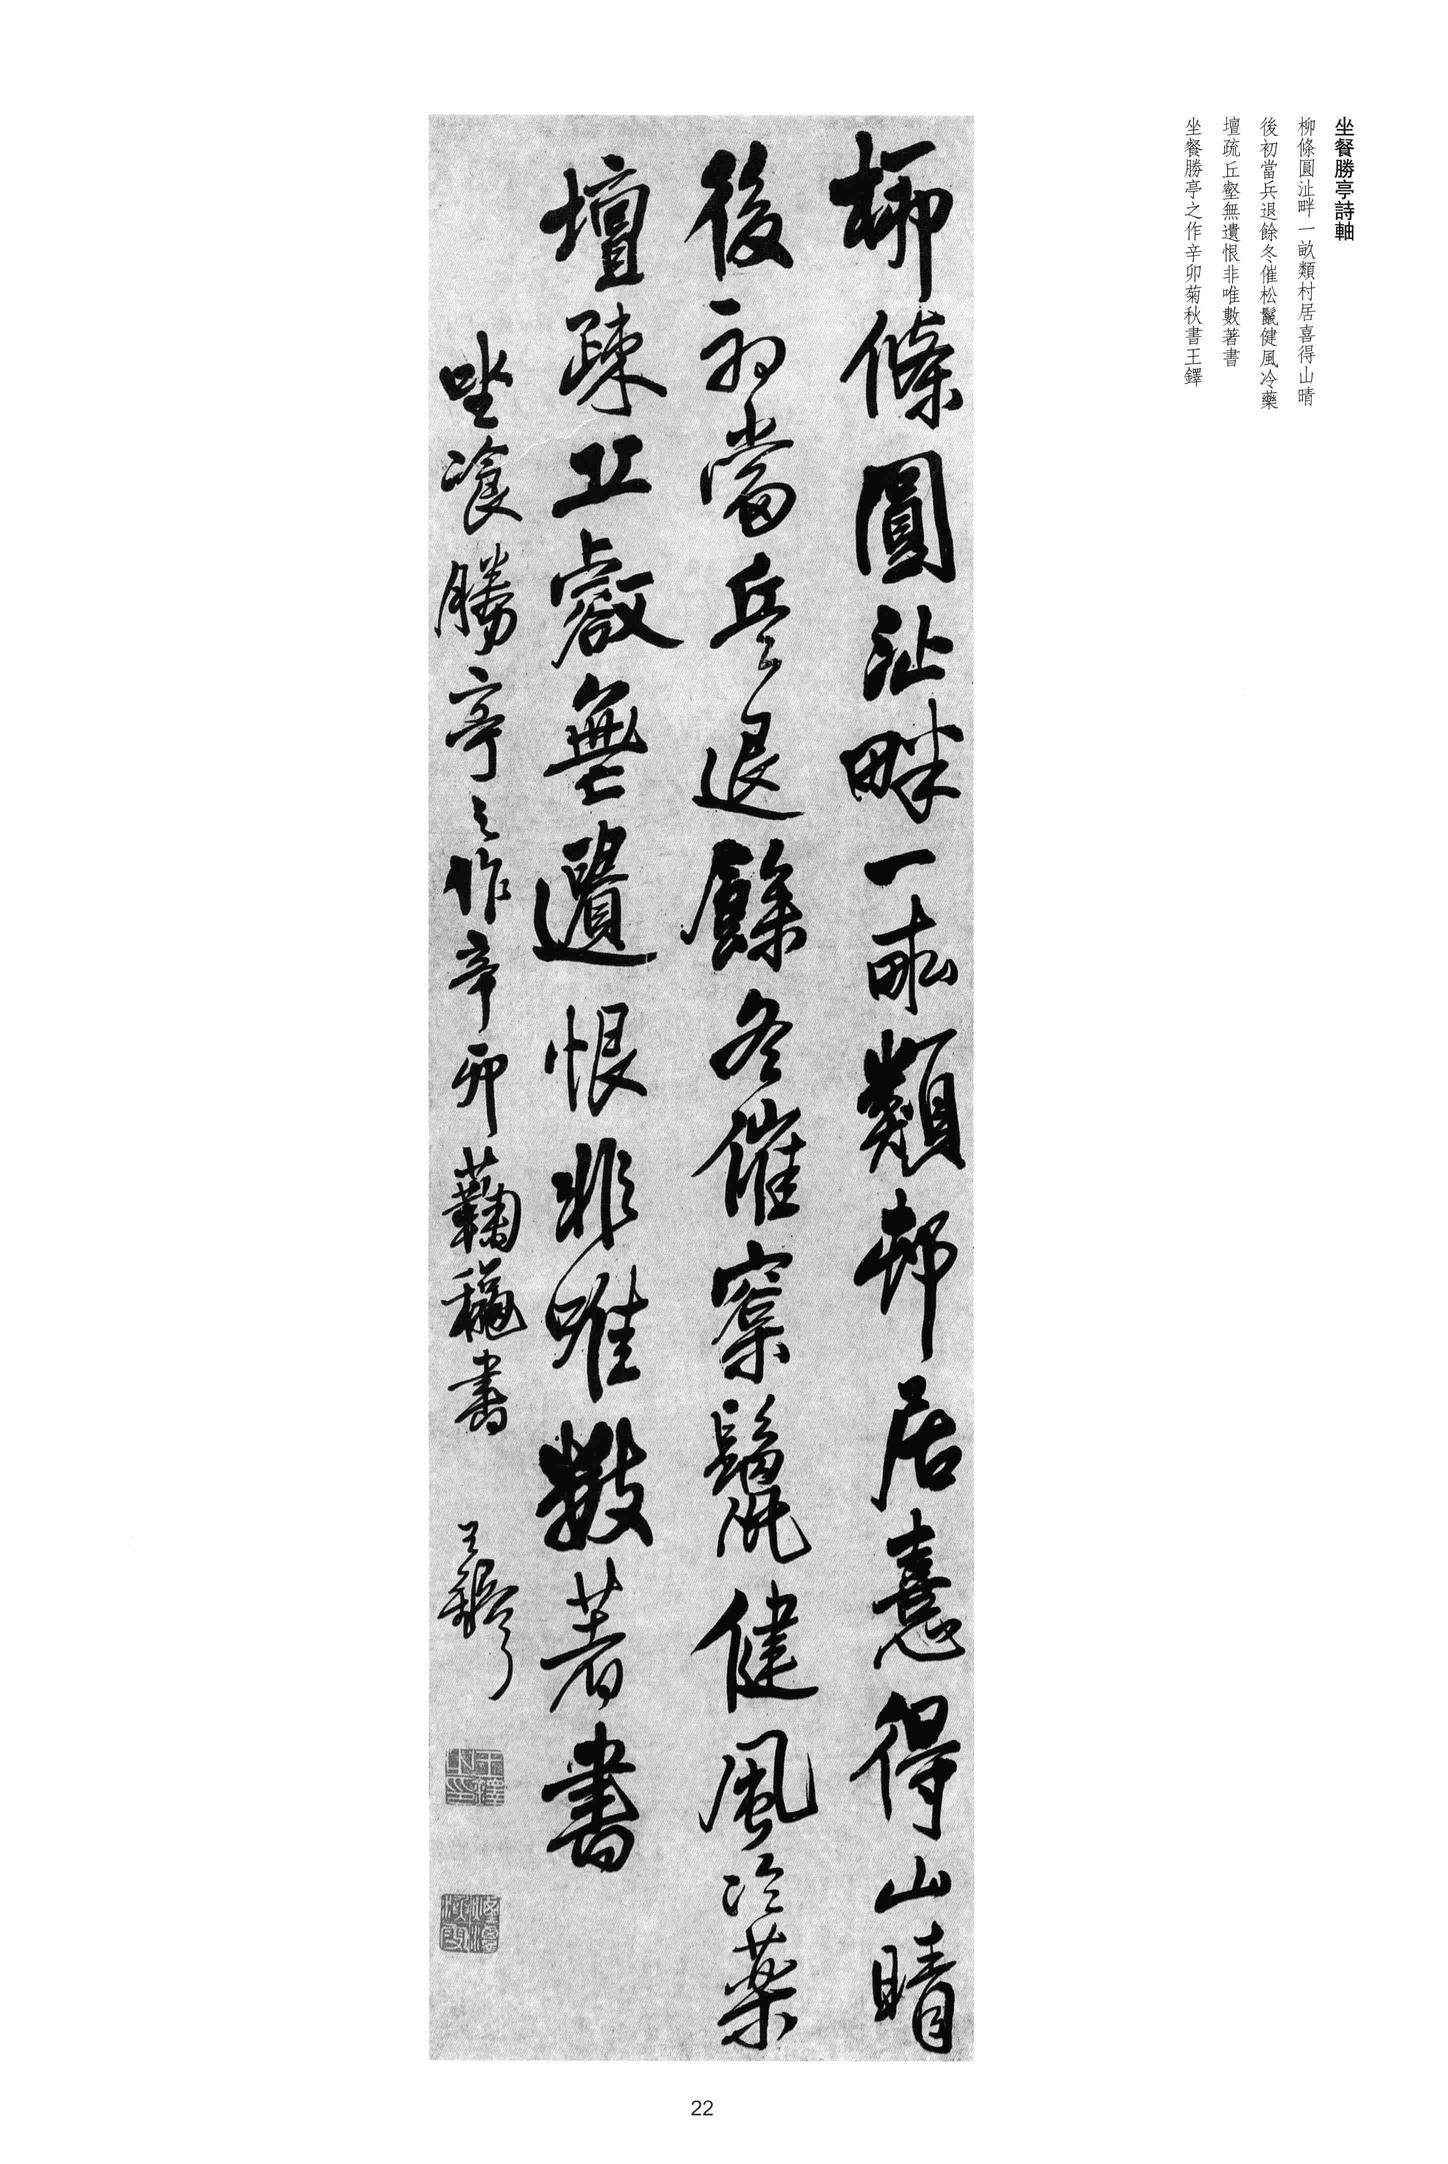 坐餐勝亭詩軸
柳條圓沚畔一畝類村居喜得山晴
後初當兵退餘冬催松鬣健風冷藥
壇疏丘壑無遺恨非唯數著書
坐餐勝亭之作辛卯菊秋書王鐸
柳條圓沚畔一畝類邨居憙得山晴
後初當兵退餘冬催窠鬣健風冷藥
壇疎丘壑無遺恨非唯數著書
坐飡勝亭之作辛卯蘜穐書 王鐸
王鐸之印
22